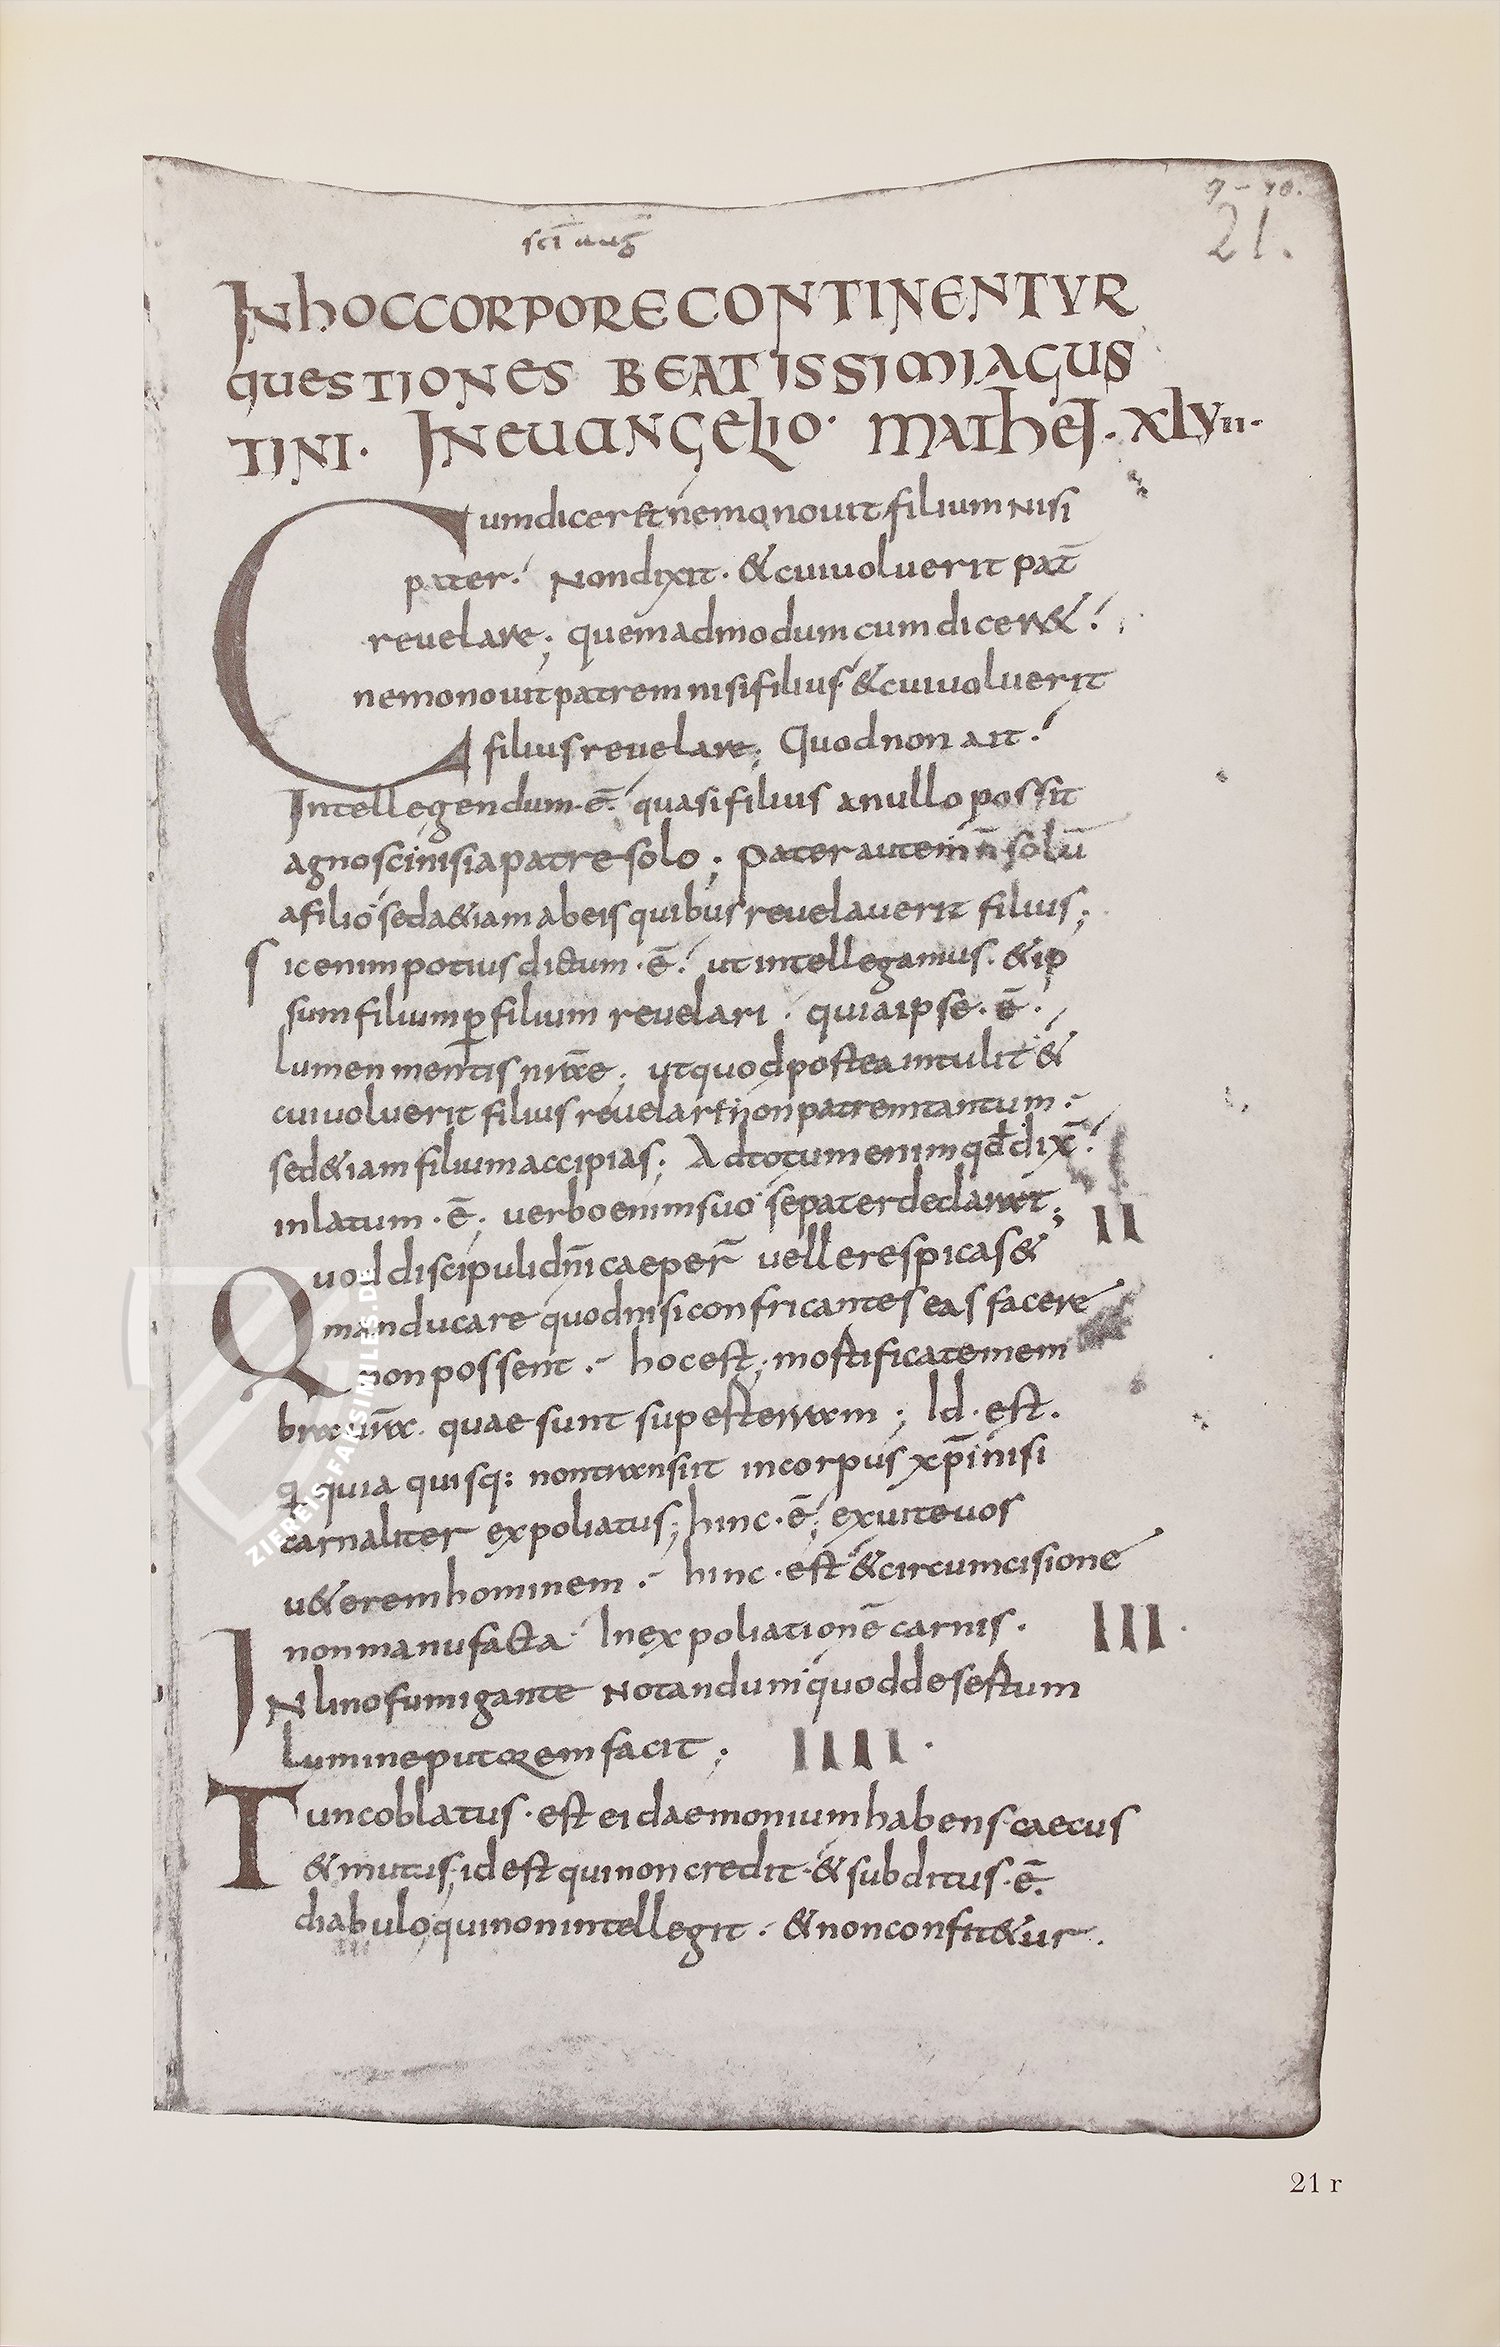 9-10.
21.
sc̄i aug̅
IN hOC CORPORE CONTINENTVR
QUESTIONES BEATISSIMI AGUS
TINI. IN EUANGELIO. MATHEI. XLVII.
Cum diceret nemo nouit filium nisi
pater. Non dixit. & cui uoluerit pat̄
reuelare; quemadmodum cum dicer&.
nemo nouit patrem nisi filius & cui uoluerit
filius reuelare; Quod non ait.
Intellegendum. ē. quasi filius a nullo possit
agnosci nisi a patre solo; pater autem n̄ solū
a filio sed a &iam ab eis quibus reuelauerit filius;
Sic enim potius dictum. ē. ut intellegamus. & ip
sum filium ꝑ filium reuelari. quia ipse. ē.
lumen mentis nr̄ae; ut quod postea intulit &
cui uoluerit filius reuelare non patrem tantum.
sed &iam filium accipias; Ad totum enim qđ dix̄.
inlatum. ē; uerbo enim suo se pater declaret;
II
Quod discipuli dn̄i caeper̄ uellere spicas &
manducare quod nisi confricantes eas facere
non possent. hoc est; mortificate mem
bra ur̄a. quae sunt sup esterram; Id. est.
quia quisq: non transiit in corpus xp̄i nisi
carnaliter expoliatus; hinc. ē; exuite uos
u&erem hominem. hinc. est & circumcisione
non manu facta In expoliationē carnis.
III.
IN lino fumigante Notandum quod desertum
lumine putorem facit;
IIII.
Tunc oblatus. est ei daemonium habens. caecus
& mutus, id est qui non credit. & subditus. ē.
diabulo, qui non intellegit. & non confit&ur.
ZIEREIS-FAKSIMILES.DE
21 r